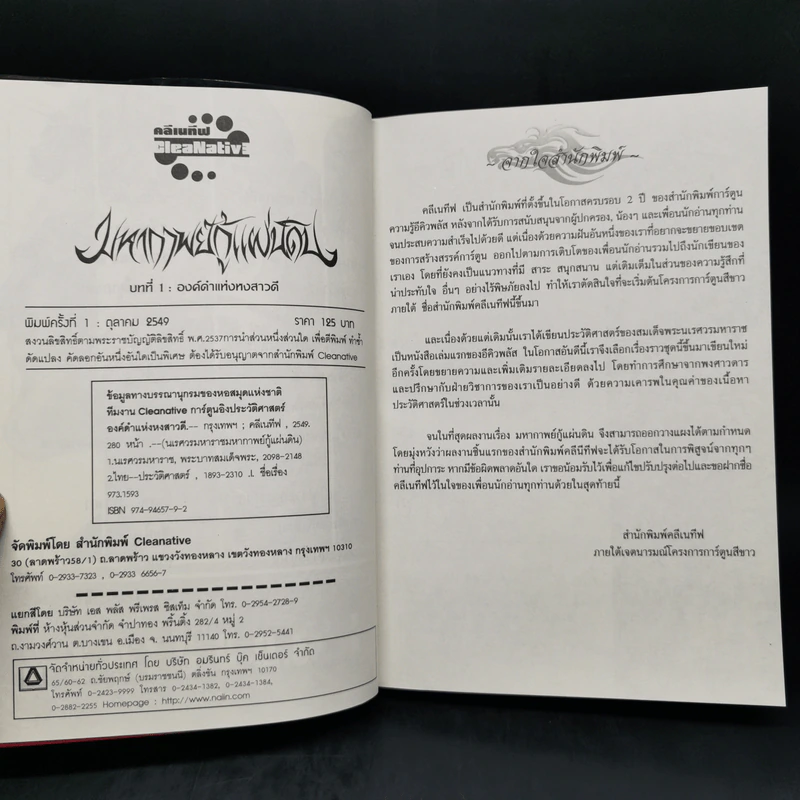 คลีเนทีฟ
CleaNative
มหากาพย์กู้แผ่นดิน
บทที่ 1 : องค์ดำแห่งหงสาวดี
พิมพ์ครั้งที่ 1 : ตุลาคม 2549 ราคา 125 บาท
สงวนลิขสิทธิ์ตามพระราชบัญญัติลิขสิทธิ์ พ.ศ.2537การนำส่วนหนึ่งส่วนใด เพื่อตีพิมพ์ ทำซ้ำ
ดัดแปลง คัดลอกอันหนึ่งอันใดเป็นพิเศษ ต้องได้รับอนุญาตจากสำนักพิมพ์ Cleanative
ข้อมูลทางบรรณานุกรมของหอสมุดแห่งชาติ
ทีมงาน Cleanative การ์ตูนอิงประวัติศาสตร์
องค์ดำแห่งหงสาวดี.-- กรุงเทพฯ ; คลีเนทีฟ , 2549.
280 หน้า .--(นเรศวรมหาราชมหากาพย์กู้แผ่นดิน)
1.นเรศวรมหาราช, พระบาทสมเด็จพระ, 2098-2148
2.ไทย--ประวัติศาสตร์ , 1893-2310 .I. ชื่อเรื่อง
973.1593
ISBN 974-94657-9-2
จัดพิมพ์โดย สำนักพิมพ์ Cleanative
30 (ลาดพร้าว58/1) ถ.ลาดพร้าว แขวงวังทองหลาง เขตวังทองหลาง กรุงเทพฯ 10310
โทรศัพท์ 0-2933-7323 , 0-2933 6656-7
แยกสีโดย บริษัท เอส พลัส พรีเพรส ซิสเท็ม จำกัด โทร. 0-2954-2728-9
พิมพ์ที่ ห้างหุ้นส่วนจำกัด จำปาทอง พริ้นติ้ง 282/4 หมู่ 2
ถ.งามวงศ์วาน ต.บางเขน อ.เมือง จ. นนทบุรี 11140 โทร. 0-2952-5441
จัดจำหน่ายทั่วประเทศ โดย บริษัท อมรินทร์ บุ๊ค เซ็นเตอร์ จำกัด
65/60-62 ถ.ชัยพฤกษ์ (บรมราชชนนี) ตลิ่งชัน กรุงเทพฯ 10170
โทรศัพท์ 0-2423-9999 โทรสาร 0-2434-1382, 0-2434-1384,
0-2882-2255 Homepage : http://www.naiin.com
~ จากใจสำนักพิมพ์ ~
คลีเนทีฟ เป็นสำนักพิมพ์ที่ตั้งขึ้นในโอกาสครบรอบ 2 ปี ของสำนักพิมพ์การ์ตูน
ความรู้อีคิวพลัส หลังจากได้รับการสนับสนุนจากผู้ปกครอง, น้องๆ และเพื่อนนักอ่านทุกท่าน
จนประสบความสำเร็จไปด้วยดี แต่เนื่องด้วยความฝันอันหนึ่งของเราที่อยากจะขยายขอบเขต
ของการสร้างสรรค์การ์ตูน ออกไปตามการเติบโตของเพื่อนนักอ่านรวมไปถึงนักเขียนของ
เราเอง โดยที่ยังคงเป็นแนวทางที่มี สาระ สนุกสนาน แต่เติมเต็มในส่วนของความรู้สึกที่
น่าประทับใจ อื่นๆ อย่างไร้พิษภัยลงไป ทำให้เราตัดสินใจที่จะเริ่มต้นโครงการการ์ตูนสีขาว
ภายใต้ ชื่อสำนักพิมพ์คลีเนทีฟนี้ขึ้นมา
และเนื่องด้วยแต่เดิมนั้นเราได้เขียนประวัติศาสตร์ของสมเด็จพระนเรศวรมหาราช
เป็นหนังสือเล่มแรกของอีคิวพลัส ในโอกาสอันดีนี้เราจึงเลือกเรื่องราวชุดนี้ขึ้นมาเขียนใหม่
อีกครั้งโดยขยายความและเพิ่มเติมรายละเอียดลงไป โดยทำการศึกษาจากพงศาวดาร
และปรึกษากับฝ่ายวิชาการของเราเป็นอย่างดี ด้วยความเคารพในคุณค่าของเนื้อหา
ประวัติศาสตร์ในช่วงเวลานั้น
จนในที่สุดผลงานเรื่อง มหากาพย์กู้แผ่นดิน จึงสามารถออกวางแผงได้ตามกำหนด
โดยมุ่งหวังว่าผลงานชิ้นแรกของสำนักพิมพ์คลีนีทีฟจะได้รับโอกาสในการพิสูจน์จากทุกๆ
ท่านที่อุปการะ หากมีข้อผิดพลาดอันใด เราขอน้อมรับไว้เพื่อแก้ไขปรับปรุงต่อไปและขอฝากชื่อ
คลีเนทีฟไว้ในใจของเพื่อนนักอ่านทุกท่านด้วยในสุดท้ายนี้
สำนักพิมพ์คลีเนทีฟ
ภายใต้เจตนารมณ์โครงการการ์ตูนสีขาว